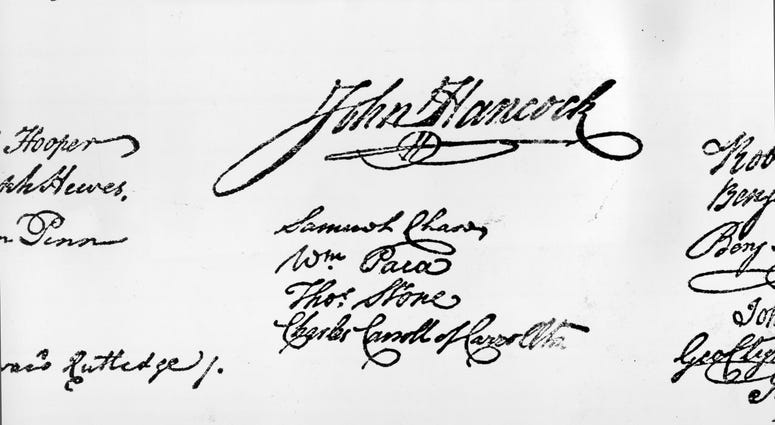 John Hancock
Hooper
Hewes,
Penn
Rutledge /.
Samuel Chase
Wm Paca
Thos. Stone
Charles Carroll of Carrollton
Rob
Benj
Benj
Joh
Geo Cly